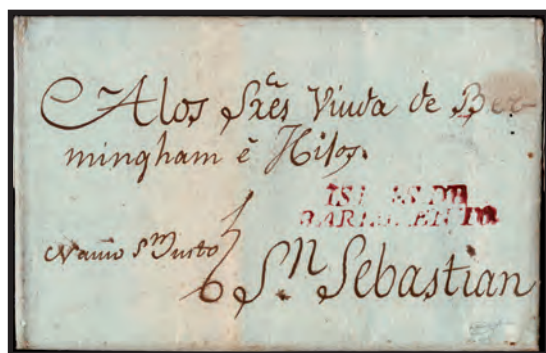 A los Sres Viuda de Ber-
mingham é Hijos.
ISLAS DE
BARLOVENTO
Navio Sn Justo 6
Sn Sebastian